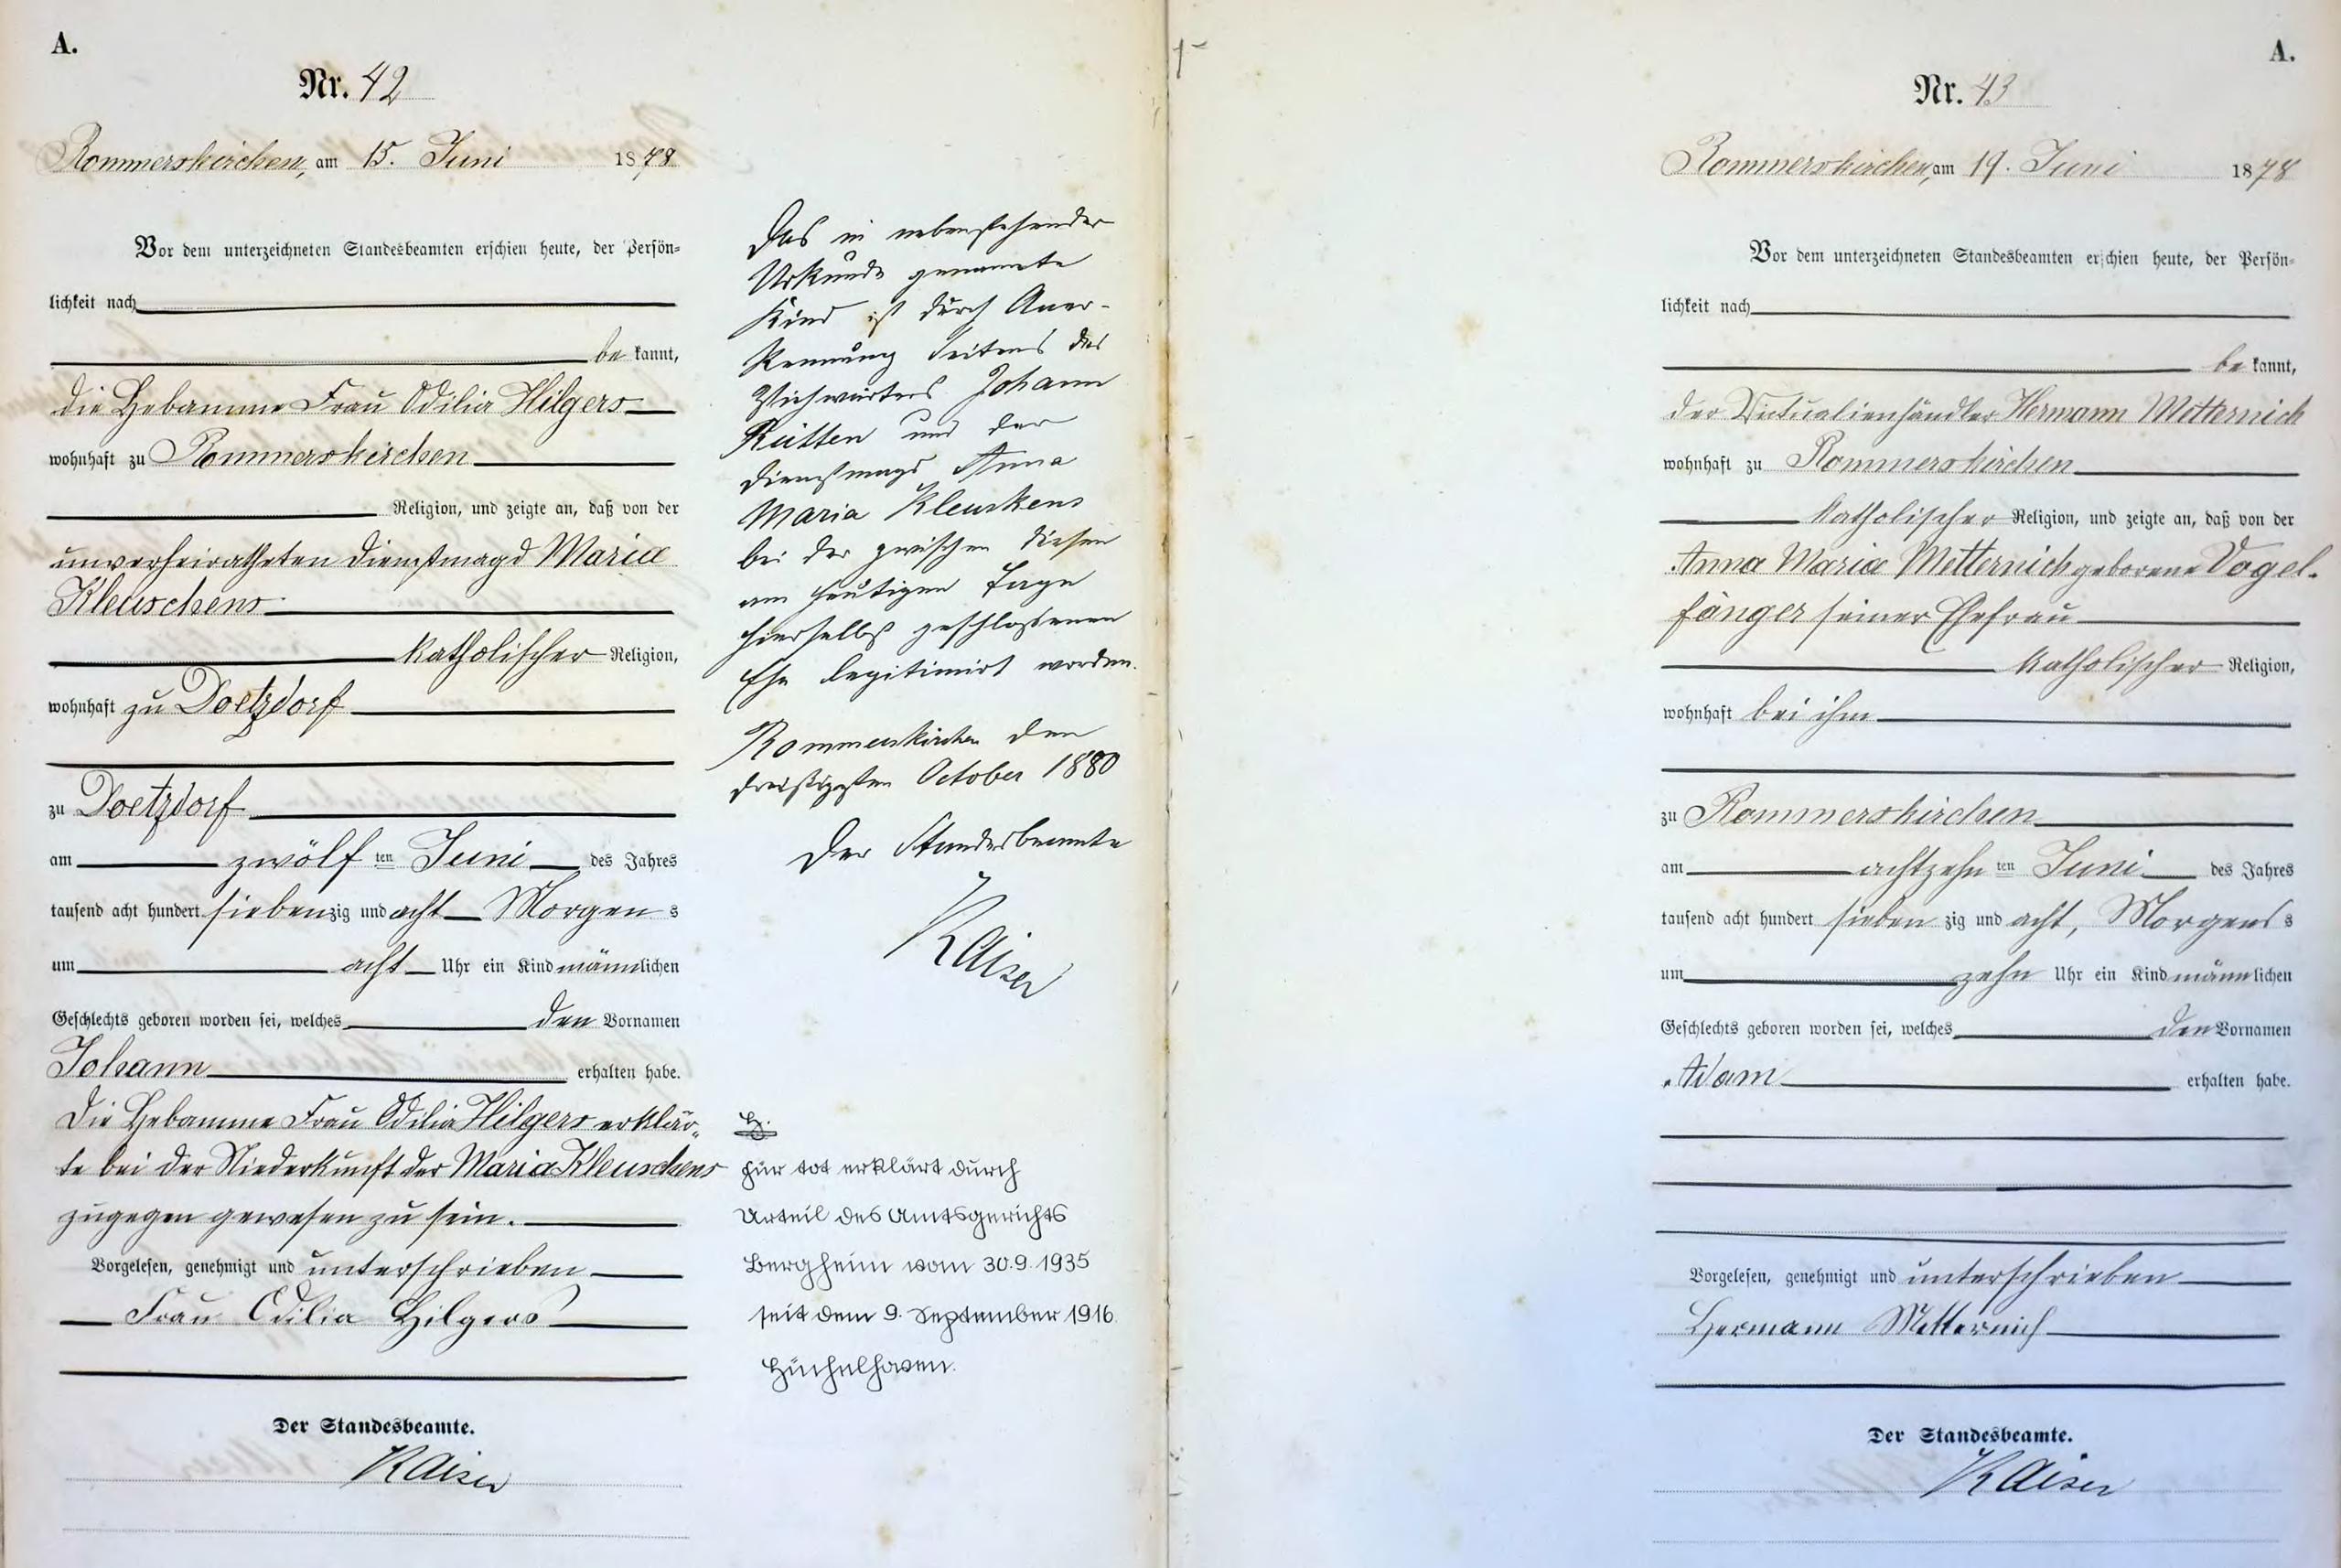 A.
Nr. 42
Rommerskirchen, am 15. Juni 1878
Vor dem unterzeichneten Standesbeamten erschien heute, der Persön=
lichkeit nach
be kannt,
die Hebamme Frau Odilia Hilgers
wohnhaft zu Rommerskirchen
Religion, und zeigte an, daß von der
unverheiratheten Dienstmagd Maria
Kleuschens
katholischer Religion,
wohnhaft zu Doetzdorf
zu Doetzdorf
am zwölf ten Juni des Jahres
tausend acht hundert siebenzig und acht Morgen s
um acht Uhr ein Kind männlichen
Geschlechts geboren worden sei, welches den Vornamen
Johann erhalten habe.
Die Hebamme Frau Odilia Hilgers erklär-
te bei der Niederkunft der Maria Kleuschens
zugegen gewesen zu sein.
Vorgelesen, genehmigt und unterschrieben
Frau Odilia Hilgers
Der Standesbeamte.
Kaiser
Das in nebenstehender
Urkunde genannte
Kind ist durch Aner-
kennung seitens des
Johann
Rütten und der
Dienstmagd Anna
Maria Kleuskens
bei der zwischen diesen
am heutigen Tage
hierselbst geschlossenen
Ehe legitimirt worden.
Rommerskirchen den
dreißigsten October 1880
Der Standesbeamte
Kaiser
für tot erklärt durch
Urteil des Amtsgerichts
Bergheim vom 30.9.1935
seit dem 9. September 1916
Hüchelhoven.
A.
Nr. 43
Rommerskirchen, am 19. Juni 1878
Vor dem unterzeichneten Standesbeamten erschien heute, der Persön=
lichkeit nach
be kannt,
der Victualienhändler Hermann Metternich
wohnhaft zu Rommerskirchen
katholischer Religion, und zeigte an, daß von der
Anna Maria Metternich geborene Vogel-
fänger seiner Ehefrau
katholischer Religion,
wohnhaft bei ihm
zu Rommerskirchen
am achtzehn ten Juni des Jahres
tausend acht hundert sieben zig und acht, Morgens s
um zehn Uhr ein Kind männlichen
Geschlechts geboren worden sei, welches den Vornamen
Adam erhalten habe.
Vorgelesen, genehmigt und unterschrieben
Hermann Metternich
Der Standesbeamte.
Kaiser